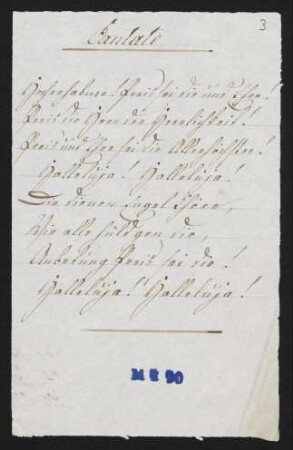 3
Cantate
Hocherhabner! Preis sei dir und Ehre!
Preis dir Herr der Herrlichkeit!
Preis und Ehre sei dir Allerhöchster!
Halleluja! Halleluja!
Dir dienen Engel Chöre,
Wir alle huldgen dir,
Anbetung Preis sei dir!
Halleluja! Halleluja!
M S 90